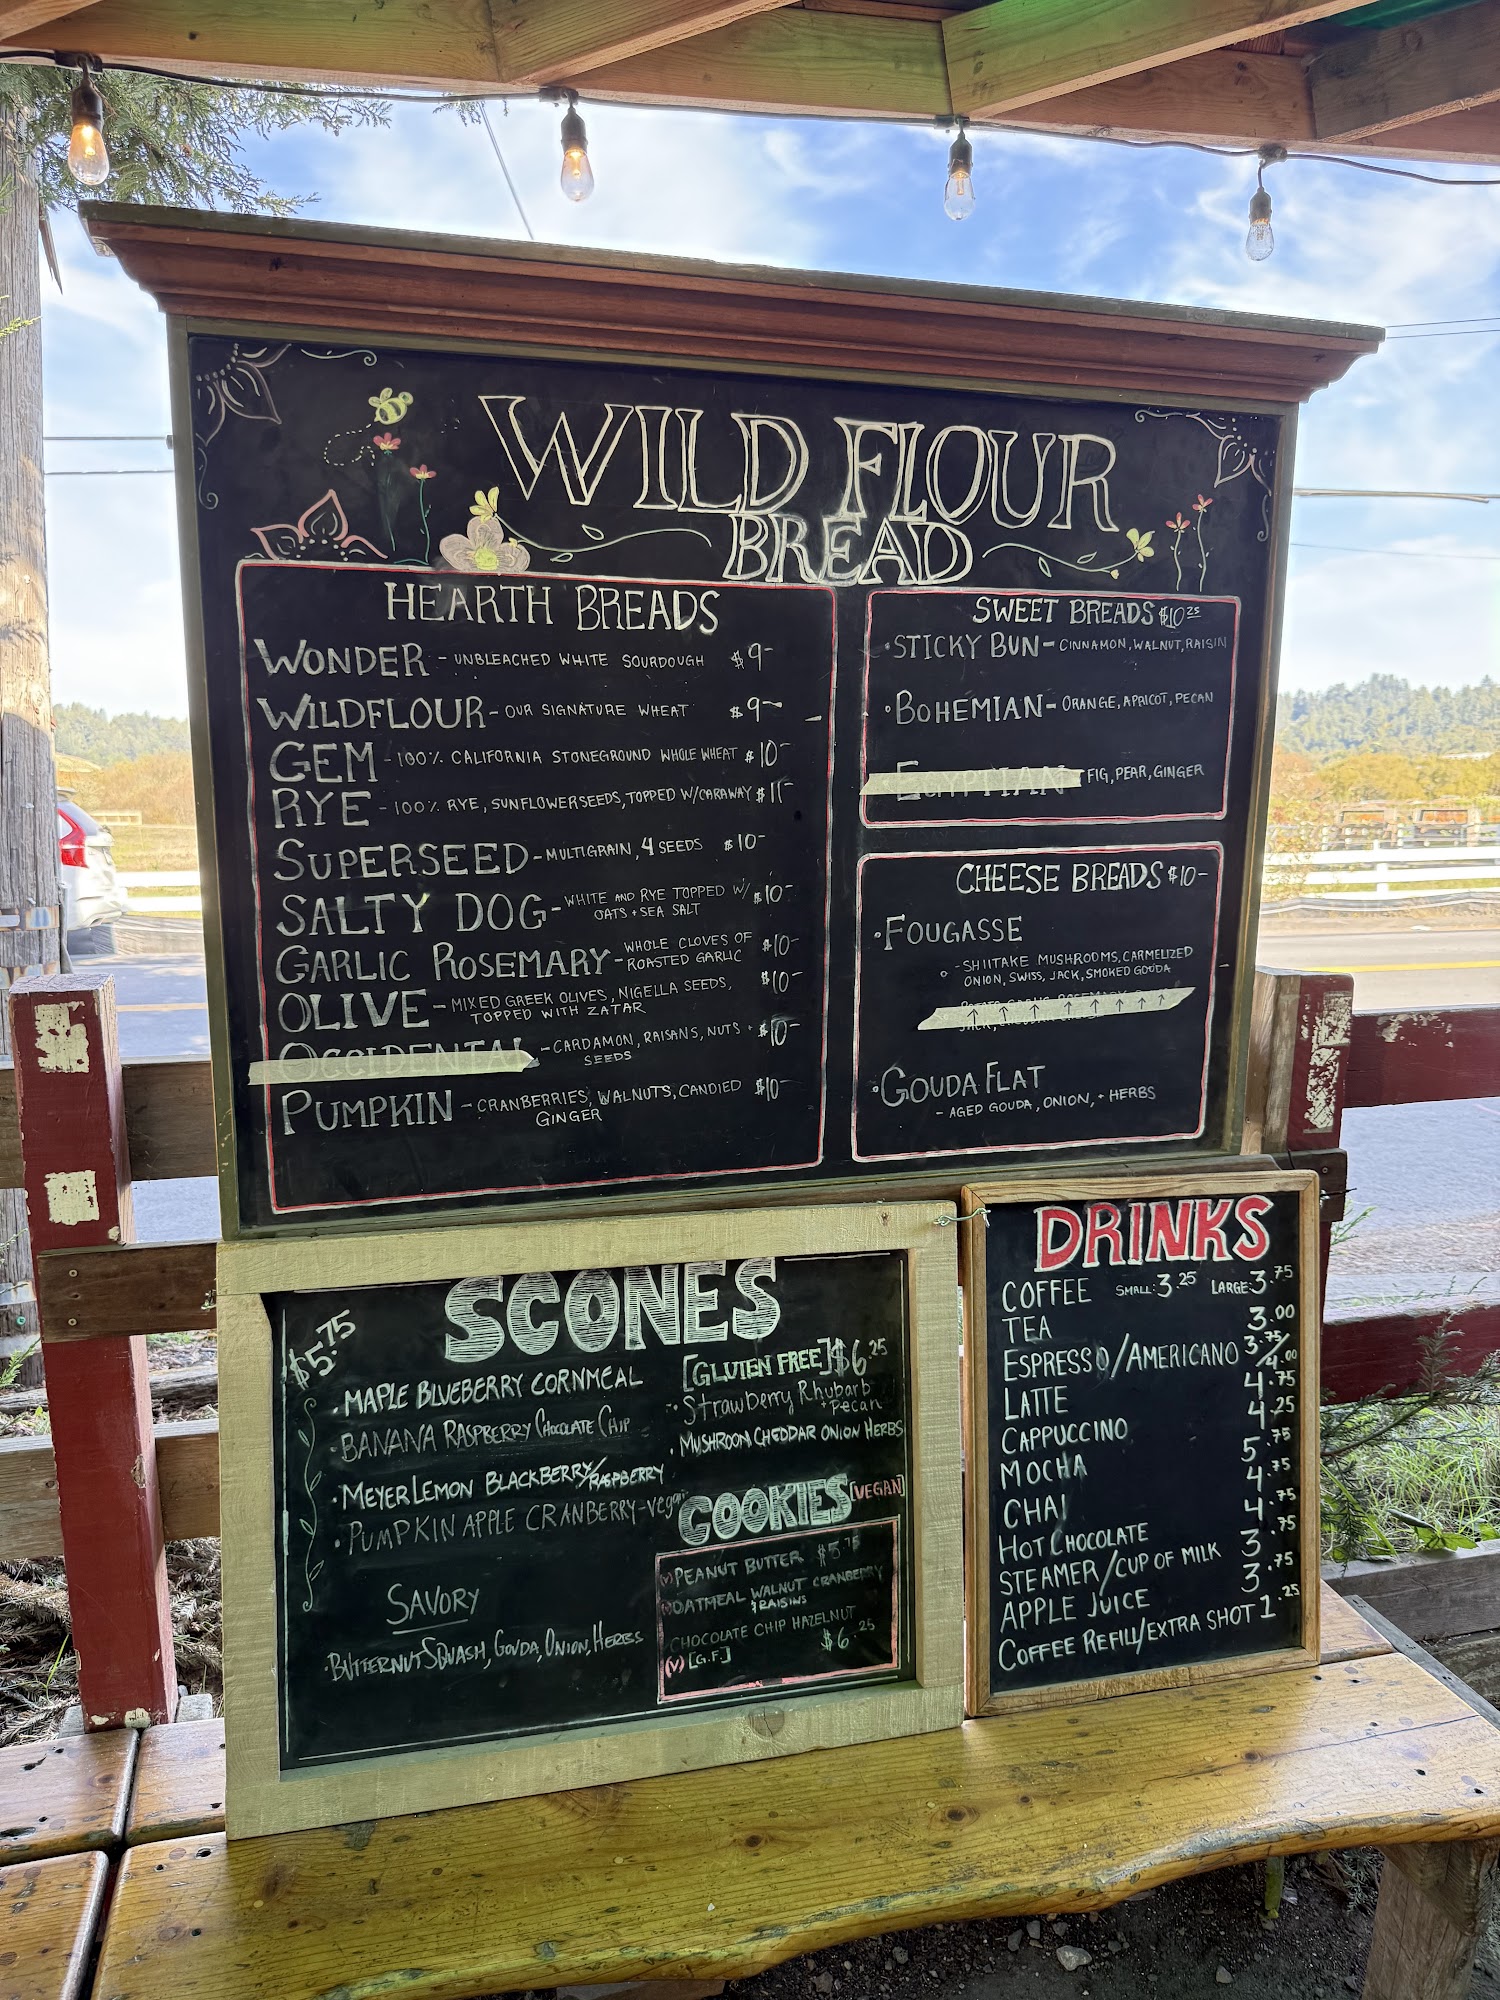 WILD FLOUR
BREAD
HEARTH BREADS
WONDER - UNBLEACHED WHITE SOURDOUGH $9-
WILDFLOUR - OUR SIGNATURE WHEAT $9-
GEM - 100% CALIFORNIA STONEGROUND WHOLE WHEAT $10-
RYE - 100% RYE, SUNFLOWERSEEDS, TOPPED W/CARAWAY $11-
SUPERSEED - MULTIGRAIN, 4 SEEDS $10-
SALTY DOG - WHITE AND RYE TOPPED W/ $10-
OATS + SEA SALT
GARLIC ROSEMARY - WHOLE CLOVES OF $10-
ROASTED GARLIC
OLIVE - MIXED GREEK OLIVES, NIGELLA SEEDS, $10-
TOPPED WITH ZATAR
OCCIDENTAL - CARDAMON, RAISANS, NUTS + $10-
SEEDS
PUMPKIN - CRANBERRIES, WALNUTS, CANDIED $10-
GINGER
SWEET BREADS $10 25
• STICKY BUN - CINNAMON, WALNUT, RAISIN
• BOHEMIAN - ORANGE, APRICOT, PECAN
EGYPTIAN FIG, PEAR, GINGER
CHEESE BREADS $10-
• FOUGASSE
- SHIITAKE MUSHROOMS, CARMELIZED
ONION, SWISS, JACK, SMOKED GOUDA
• GOUDA FLAT
- AGED GOUDA, ONION, + HERBS
SCONES
$5.75
• MAPLE BLUEBERRY CORNMEAL
• BANANA RASPBERRY CHOCOLATE CHIP
• MEYER LEMON BLACKBERRY/RASPBERRY
• PUMPKIN APPLE CRANBERRY - vegan
SAVORY
• BUTTERNUT SQUASH, GOUDA, ONION, HERBS
[GLUTEN FREE] $6.25
• Strawberry Rhubarb
+ Pecan
• MUSHROOM CHEDDAR ONION HERBS
COOKIES [VEGAN]
(V) PEANUT BUTTER $5.75
(V) OATMEAL WALNUT CRANBERRY
& RAISINS
CHOCOLATE CHIP HAZELNUT
(V) [G.F.] $6.25
DRINKS
COFFEE SMALL: 3.25 LARGE: 3.75
TEA 3.00
ESPRESSO/AMERICANO 3.75/4.00
LATTE 4.75
CAPPUCCINO 4.25
MOCHA 5.75
CHAI 4.75
HOT CHOCOLATE 4.75
STEAMER/CUP OF MILK 3.75
APPLE JUICE 3.75
COFFEE REFILL/EXTRA SHOT 1.25